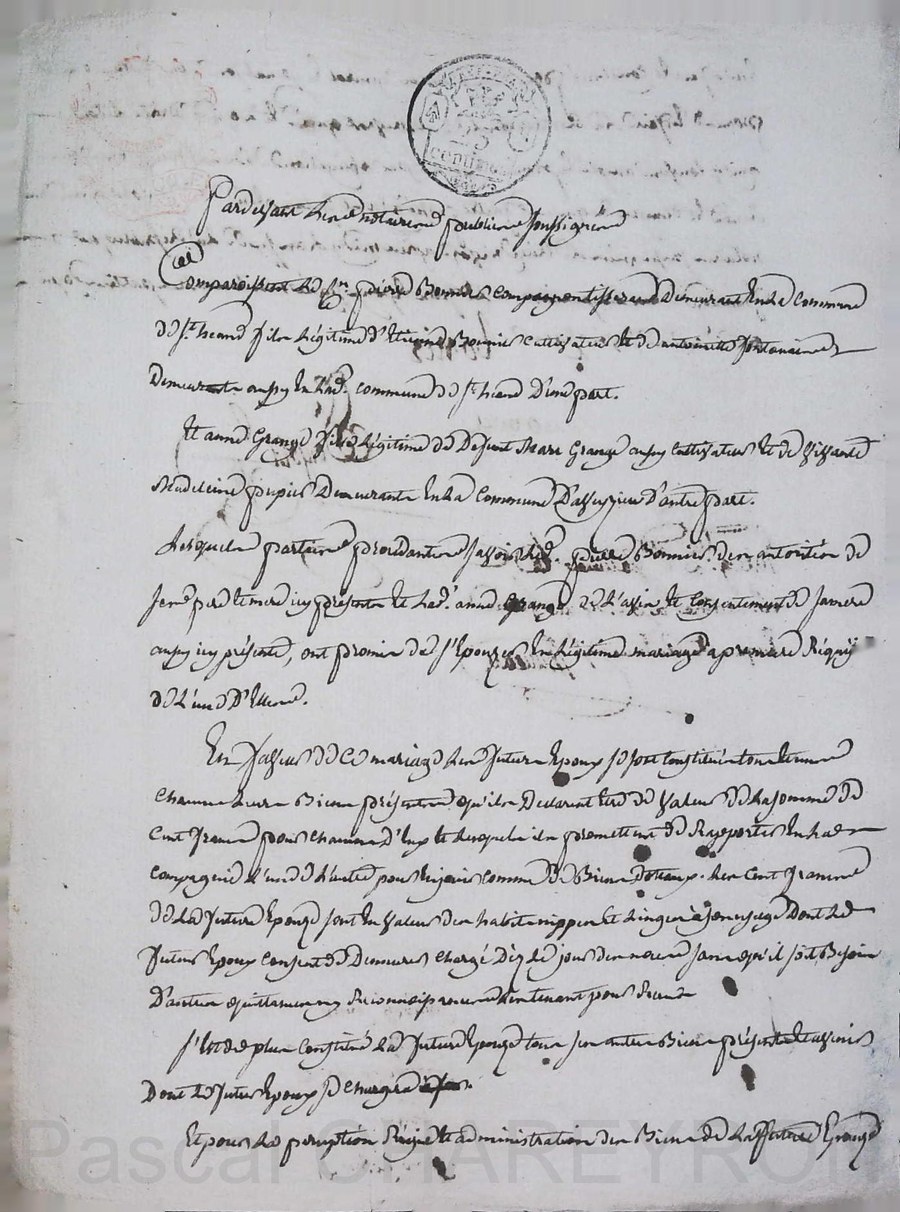 Pardevant Les notaires publics soussignés
Comparoissent Le Sr. pierre Bonnier Compagnon tisserand Demeurant En La Commune
de St. heand fils Légitime d'Etienne Bonnier Cultivateur Et de antoinette fontanaire
Demeurants aussy En Lad. commune de St. heand D'une part.
Et anne Grange fille Légitime de Defunt Marc Grange aussy Cultivateur Et de vivante
Madeleine pupier Demeurante En La Commune D'aveyzieu D'autre part.
Lesquelles parties procédantes savoir Led. pierre Bonnier de autorités de
ses pere Et mere icy présents Et Lad. anne Grange de L'avis Et Consentement de sa mere
aussy icy présente, ont promis de s'Epouser En Légitime mariage a premiere Réquy
de L'un D'Eux.
En faveur de Ce mariage Les futurs Epoux se sont Constitués tous Et uns
Chacuns Leurs Biens présents qu'ils Declarent Etre de valeur de La somme de
Cent francs pour chacun d'Eux Et Lesquels ils promettent de Raporter En La
Compagnie L'un de L'autre pour En jouir comme de Biens Dotaux. Les Cent francs
de La future Epouse sont En valeur des habits nippes Et Linges à son usage Dont Le
futur Epoux Consent de Demeurer Chargé Dèz Le jour des noces sans qu'il soit Besoin
D'autre quittance ny Reconnoissance Les tenant pour Reçus
s'Est de plus Constitué La future Epouse tous ses autres Biens présents Et avenirs
Dont Le futur Epoux se Chargera
Et pour La perception Régie Et administration des Biens de La future Epouse
Pascal CHAREYRON